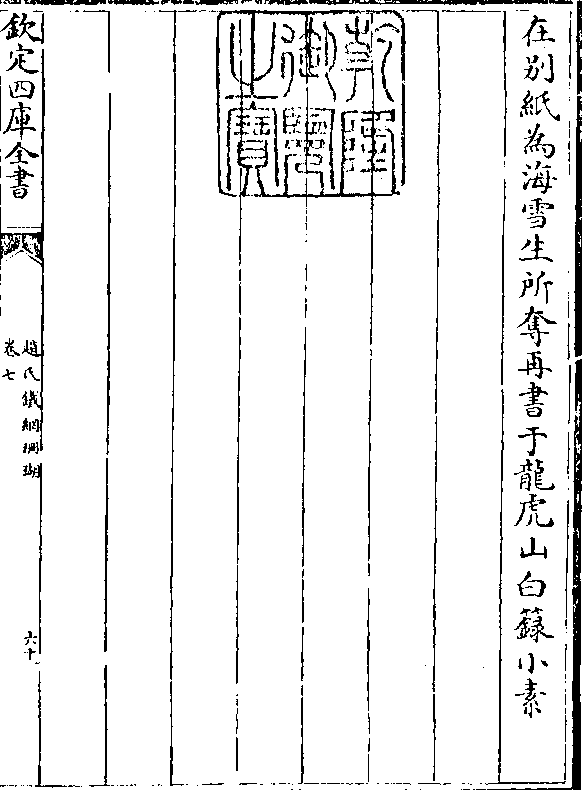 在别紙為海雪生所奪再書于龍虎山白籙小素
乾隆
御覽
之寶
欽定四庫全書
趙氏鐵網珊瑚
卷七
六十